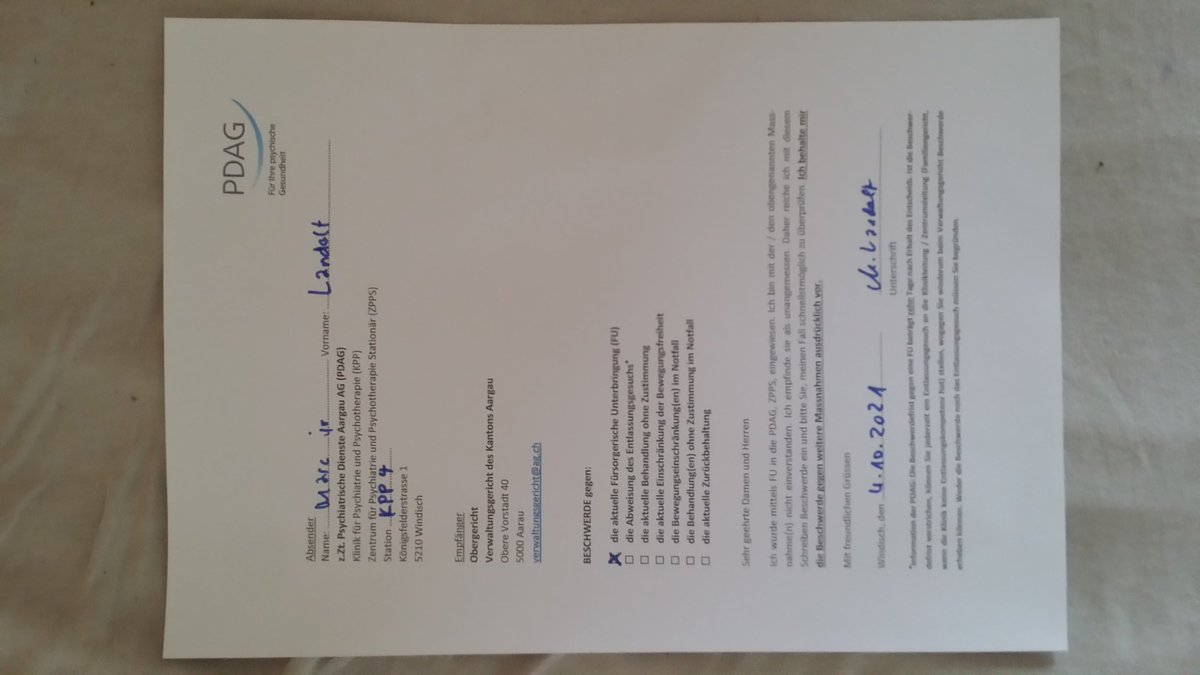 PDAG
Für Ihre psychische
Gesundheit
Absender
Name: Marc jr. Vorname: Landolt
z.Zt. Psychiatrische Dienste Aargau AG (PDAG)
Klinik für Psychiatrie und Psychotherapie (KPP)
Zentrum für Psychiatrie und Psychotherapie Stationär (ZPPS)
Station KPP 4
Königsfelderstrasse 1
5210 Windisch
Empfänger
Obergericht
Verwaltungsgericht des Kantons Aargau
Obere Vorstadt 40
5000 Aarau
verwaltungsgericht@ag.ch
BESCHWERDE gegen:
☒ die aktuelle Fürsorgerische Unterbringung (FU)
☐ die Abweisung des Entlassungsgesuchs*
☐ die aktuelle Behandlung ohne Zustimmung
☐ die aktuelle Einschränkung der Bewegungsfreiheit
☐ die Bewegungseinschränkung(en) im Notfall
☐ die Behandlung(en) ohne Zustimmung im Notfall
☐ die aktuelle Zurückbehaltung
Sehr geehrte Damen und Herren
Ich wurde mittels FU in die PDAG, ZPPS, eingewiesen. Ich bin mit der / den obengenannten Mass-
nahme(n) nicht einverstanden. Ich empfinde sie als unangemessen. Daher reiche ich mit diesem
Schreiben Beschwerde ein und bitte Sie, meinen Fall schnellstmöglich zu überprüfen. Ich behalte mir
die Beschwerde gegen weitere Massnahmen ausdrücklich vor.
Mit freundlichen Grüssen
Windisch, den 4.10.2021 M. Landolt
Unterschrift
*Information der PDAG: Die Beschwerdefrist gegen eine FU beträgt zehn Tage nach Erhalt des Entscheids. Ist die Beschwer-
defrist verstrichen, können Sie jederzeit ein Entlassungsgesuch an die Klinikleitung / Zentrumsleitung (Familiengericht,
wenn die Klinik keine Entlassungskompetenz hat) stellen, wogegen Sie wiederum beim Verwaltungsgericht Beschwerde
erheben können. Weder die Beschwerde noch das Entlassungsgesuch müssen Sie begründen.